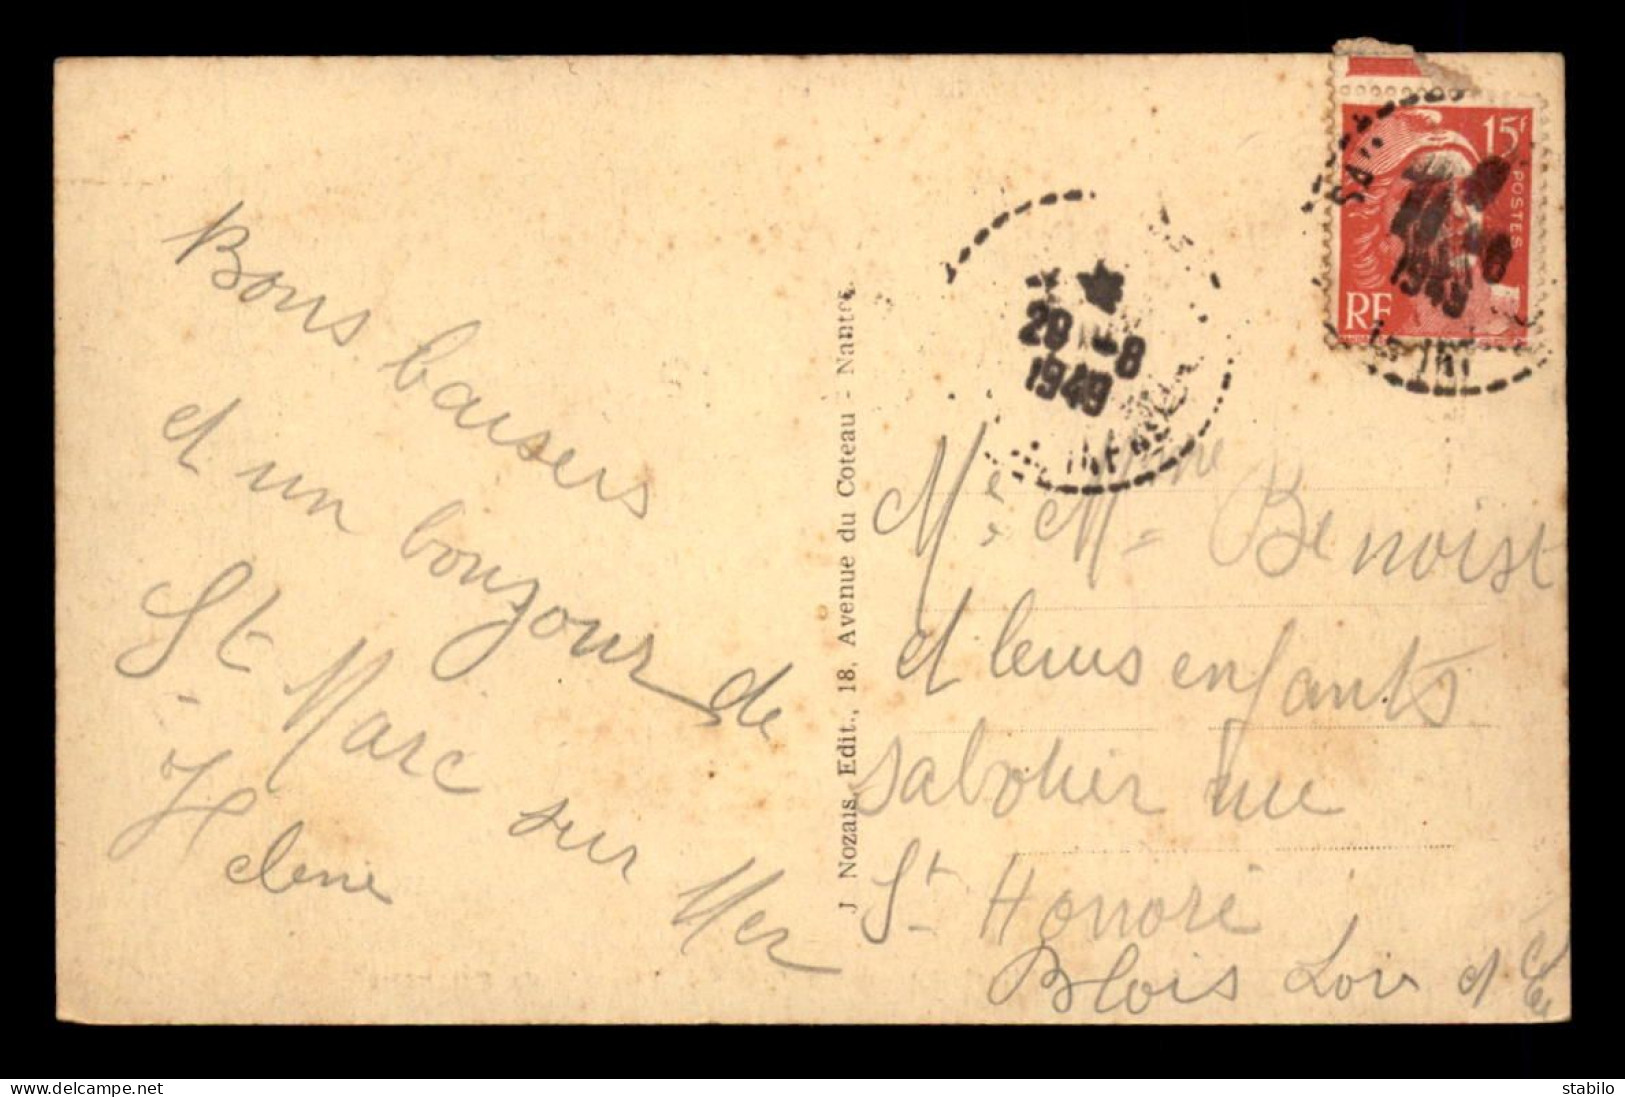 Bons baisers
et un bonjour de
St Marc sur Mer
Helene
J Nozais, Edit., 18, Avenue du Coteau - Nantes.
15F
POSTES
RF
1949
28 -8
1949
INF
Mr. & Mme Benoist
et leurs enfants
sabotier rue
St Honoré
Blois Loir et Ch
stabilo